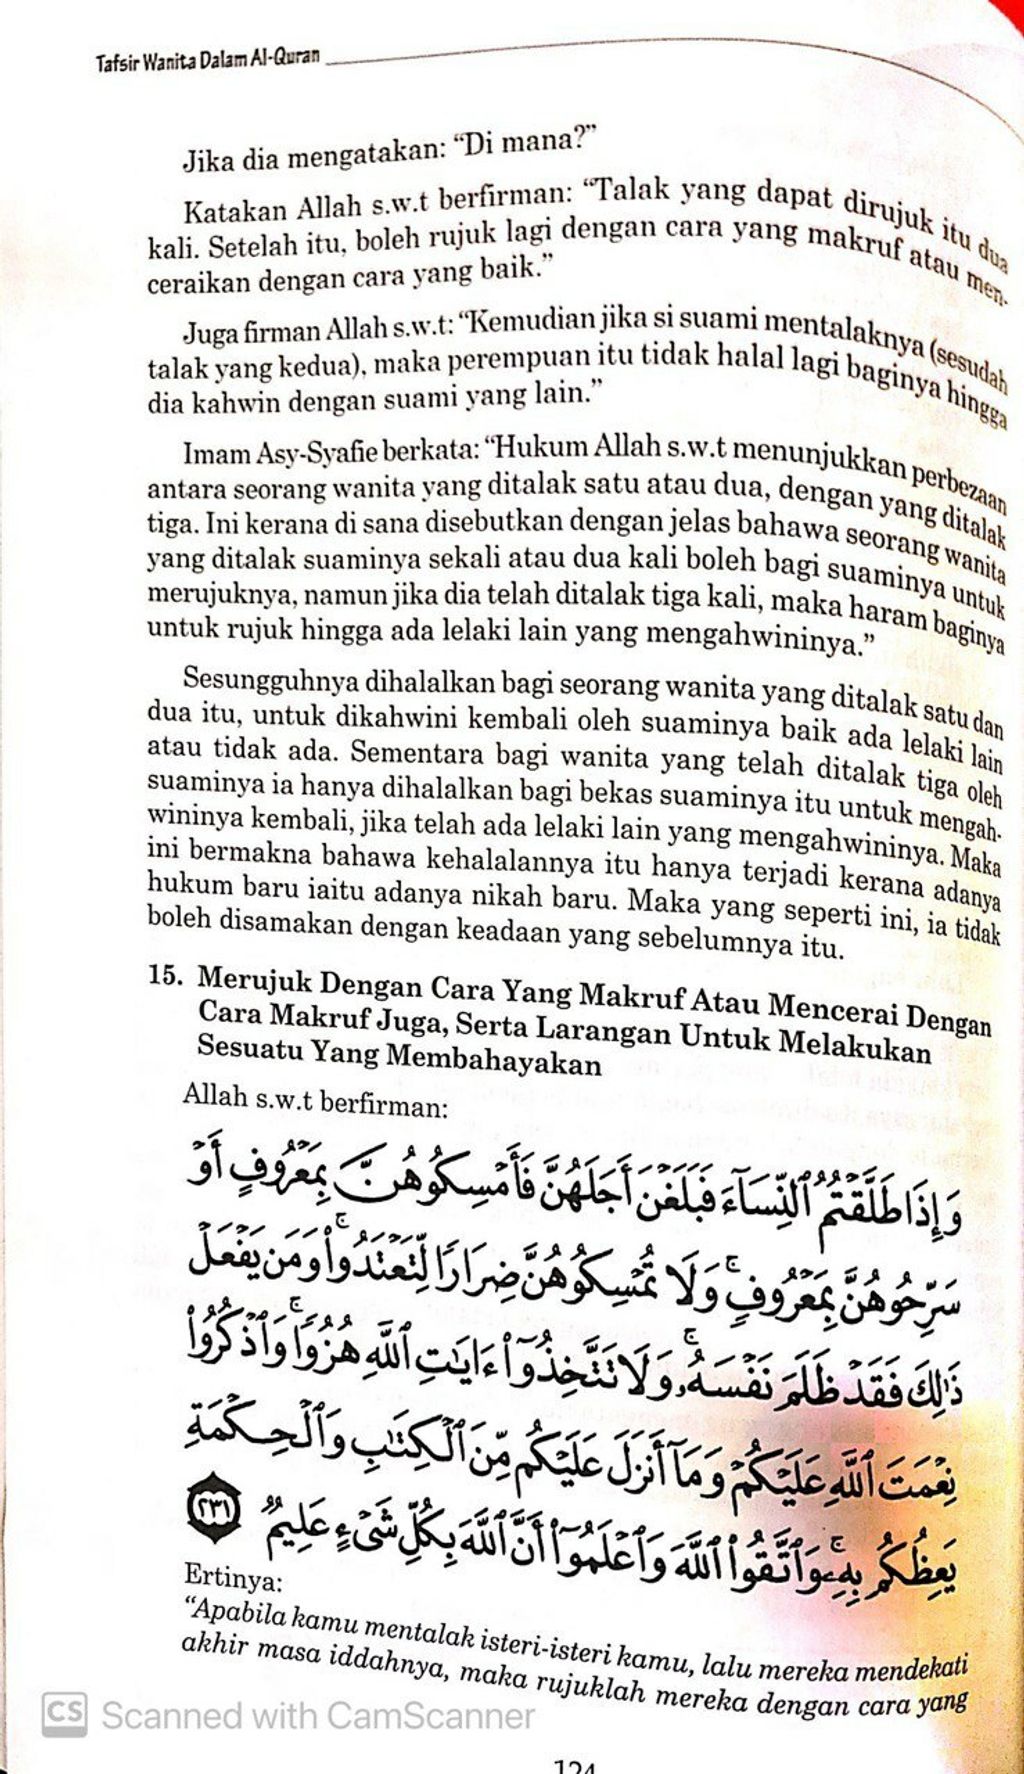 Tafsir Wanita Dalam Al-Quran
Jika dia mengatakan: “Di mana?”
Katakan Allah s.w.t berfirman: “Talak yang dapat dirujuk itu dua
kali. Setelah itu, boleh rujuk lagi dengan cara yang makruf atau men-
ceraikan dengan cara yang baik.”
Juga firman Allah s.w.t: “Kemudian jika si suami mentalaknya (sesudah
talak yang kedua), maka perempuan itu tidak halal lagi baginya hingga
dia kahwin dengan suami yang lain.”
Imam Asy-Syafie berkata: “Hukum Allah s.w.t menunjukkan perbezaan
antara seorang wanita yang ditalak satu atau dua, dengan yang ditalak
tiga. Ini kerana di sana disebutkan dengan jelas bahawa seorang wanita
yang ditalak suaminya sekali atau dua kali boleh bagi suaminya untuk
merujuknya, namun jika dia telah ditalak tiga kali, maka haram baginya
untuk rujuk hingga ada lelaki lain yang mengahwininya.”
Sesungguhnya dihalalkan bagi seorang wanita yang ditalak satu dan
dua itu, untuk dikahwini kembali oleh suaminya baik ada lelaki lain
atau tidak ada. Sementara bagi wanita yang telah ditalak tiga oleh
suaminya ia hanya dihalalkan bagi bekas suaminya itu untuk mengah-
wininya kembali, jika telah ada lelaki lain yang mengahwininya. Maka
ini bermakna bahawa kehalalannya itu hanya terjadi kerana adanya
hukum baru iaitu adanya nikah baru. Maka yang seperti ini, ia tidak
boleh disamakan dengan keadaan yang sebelumnya itu.
15. Merujuk Dengan Cara Yang Makruf Atau Mencerai Dengan
Cara Makruf Juga, Serta Larangan Untuk Melakukan
Sesuatu Yang Membahayakan
Allah s.w.t berfirman:
وَإِذَا طَلَّقْتُمُ ٱلنِّسَآءَ فَبَلَغْنَ أَجَلَهُنَّ فَأَمْسِكُوهُنَّ بِمَعْرُوفٍ أَوْ
سَرِّحُوهُنَّ بِمَعْرُوفٍ ۚ وَلَا تُمْسِكُوهُنَّ ضِرَارًا لِّتَعْتَدُوا۟ ۚ وَمَن يَفْعَلْ
ذَٰلِكَ فَقَدْ ظَلَمَ نَفْسَهُۥ ۚ وَلَا تَتَّخِذُوٓا۟ ءَايَٰتِ ٱللَّهِ هُزُوًا ۚ وَٱذْكُرُوا۟
نِعْمَتَ ٱللَّهِ عَلَيْكُمْ وَمَآ أَنزَلَ عَلَيْكُم مِّنَ ٱلْكِتَٰبِ وَٱلْحِكْمَةِ
يَعِظُكُم بِهِۦ ۚ وَٱتَّقُوا۟ ٱللَّهَ وَٱعْلَمُوٓا۟ أَنَّ ٱللَّهَ بِكُلِّ شَىْءٍ عَلِيمٌ ٢٣١
Ertinya:
“Apabila kamu mentalak isteri-isteri kamu, lalu mereka mendekati
akhir masa iddahnya, maka rujuklah mereka dengan cara yang
CS Scanned with CamScanner
124